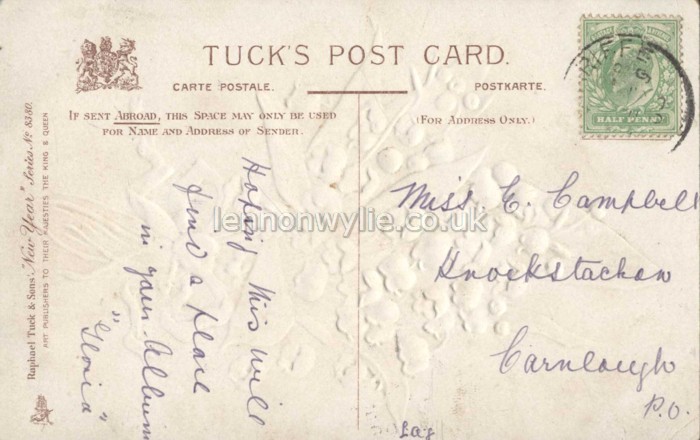 TUCK'S POST CARD.
CARTE POSTALE.
POSTKARTE.
IF SENT ABROAD, THIS SPACE MAY ONLY BE USED
FOR NAME AND ADDRESS OF SENDER.
(FOR ADDRESS ONLY.)
Raphael Tuck & Sons' "New Year" Series No 8380.
ART PUBLISHERS TO THEIR MAJESTIES THE KING & QUEEN
Hoping this will
find a place
in your Album
"Gloria"
Miss C. Campbell
Knockstackan
Carnlough
P.O.
HALF PENNY
lennonwylie.co.uk